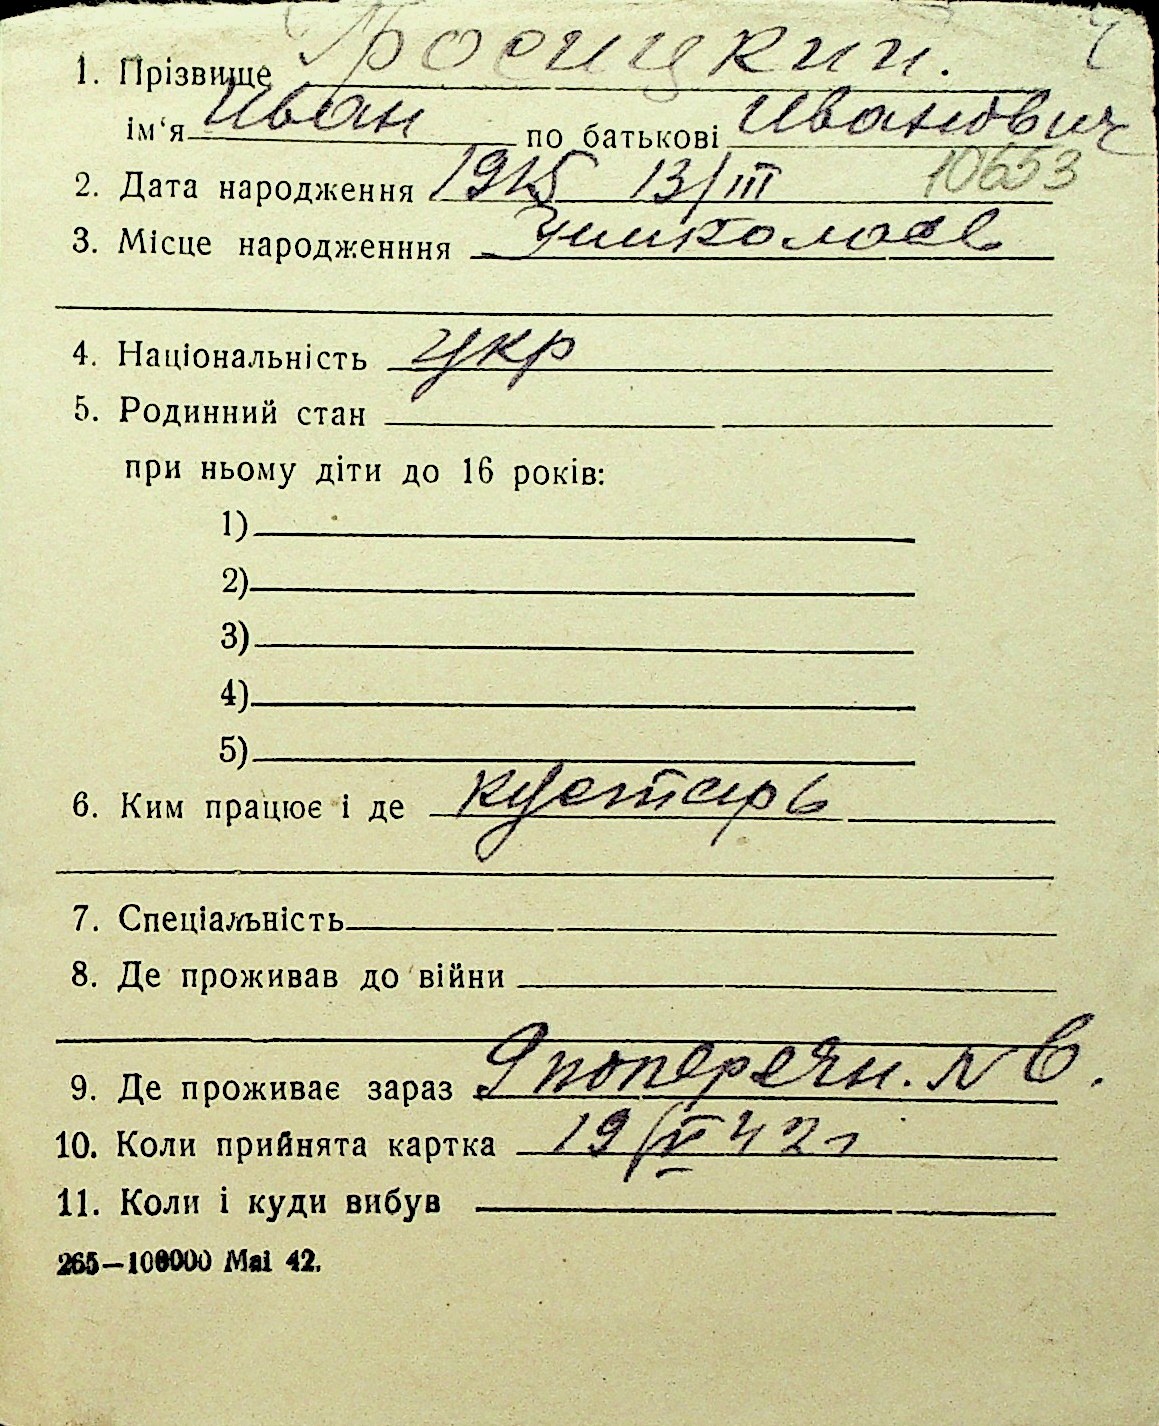 1. Прізвище Яросицкий.
ім‘я Иван по батькові Иванович
10653
2. Дата народження 1915 13/III
3. Місце народженння Николаев
4. Національність укр
5. Родинний стан
при ньому діти до 16 років:
1)
2)
3)
4)
5)
6. Ким працює і де кустарь
7. Спеціальність
8. Де проживав до війни
9. Де проживає зараз 9 поперечн. № 6.
10. Коли прийнята картка 19/V 42 г
11. Коли і куди вибув
265—100000 Mai 42.